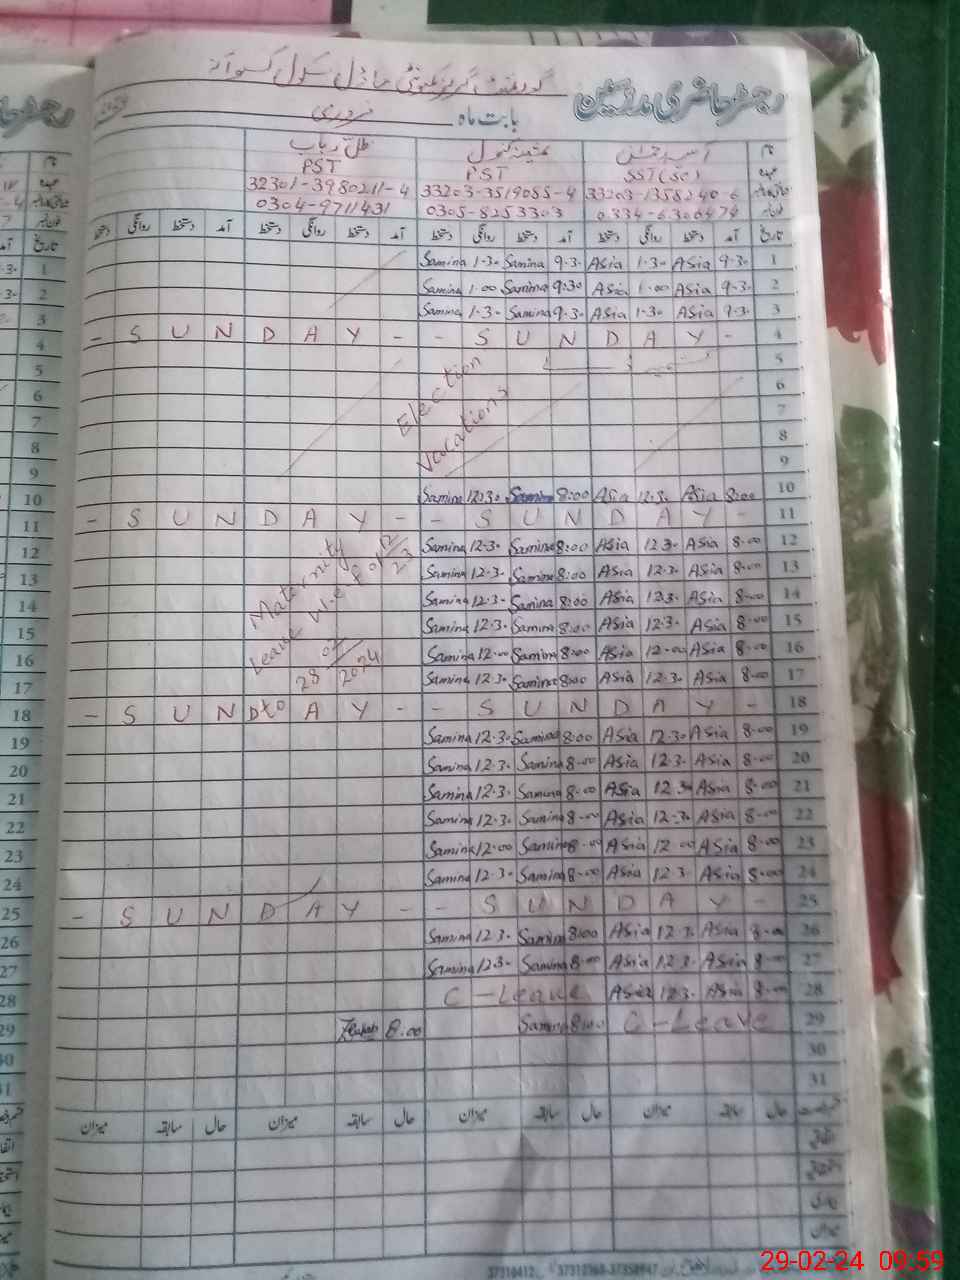 گورنمنٹ گرلز کمیونٹی ماڈل سکول
رجسٹر حاضری مدرسین
بابت ماہ فروری
نام آسیہ رحمٰن ثمینہ کنول ظل رباب
عہدہ SST(SC) PST PST
33203-1358240-6 33203-3519085-4 32301-3980211-4
0334-6306474 0305-8253303 0304-9711431
تاریخ آمد دستخط روانگی دستخط آمد دستخط روانگی دستخط آمد دستخط روانگی دستخط آمد دستخط روانگی دستخط
Samina 1-30 Samina 9-30 Asia 1-30 Asia 9-30 1
Samina 1.00 Samina 9:30 Asia 1.00 Asia 9-30 2
Samina 1-30 Samina 9-30 Asia 1-30 Asia 9-30 3
- S U N D A Y - - S U N D A Y - 4
5
6
Election
7
Vacations
8
9
Samina 12.30 Samina 8:00 Asia 12.30 Asia 8:00 10
- S U N D A Y - - S U N D A Y - 11
Samina 12.30 Samina 8:00 Asia 12.30 Asia 8.00 12
Samina 12.30 Samina 8:00 Asia 12.30 Asia 8.00 13
Samina 12.30 Samina 8:00 Asia 12.30 Asia 8.00 14
Samina 12.30 Samina 8:00 Asia 12.30 Asia 8.00 15
Samina 12.00 Samina 8:00 Asia 12.00 Asia 8.00 16
Samina 12.30 Samina 8:00 Asia 12.30 Asia 8.00 17
Maternity
Leave w.e.f 01/12/23
to
28 02/2024
- S U N D A Y - - S U N D A Y - 18
Samina 12.30 Samina 8:00 Asia 12.30 Asia 8.00 19
Samina 12.30 Samina 8.00 Asia 12.30 Asia 8.00 20
Samina 12.30 Samina 8.00 Asia 12.30 Asia 8.00 21
Samina 12.30 Samina 8.00 Asia 12.30 Asia 8.00 22
Samina 12.00 Samina 8.00 Asia 12.00 Asia 8.00 23
Samina 12.30 Samina 8.00 Asia 12.30 Asia 8.00 24
- S U N D A Y - - S U N D A Y - 25
Samina 12.30 Samina 8:00 Asia 12.30 Asia 8.00 26
Samina 12.30 Samina 8.00 Asia 12.30 Asia 8.00 27
C-Leave Asia 12.30 Asia 8.00 28
8.00 Samina 8:00 C-Leave 29
30
31
حال سابقہ میزان حال سابقہ میزان حال سابقہ میزان
اتفاقیہ
بیماری
میزان
29-02-24 09:59